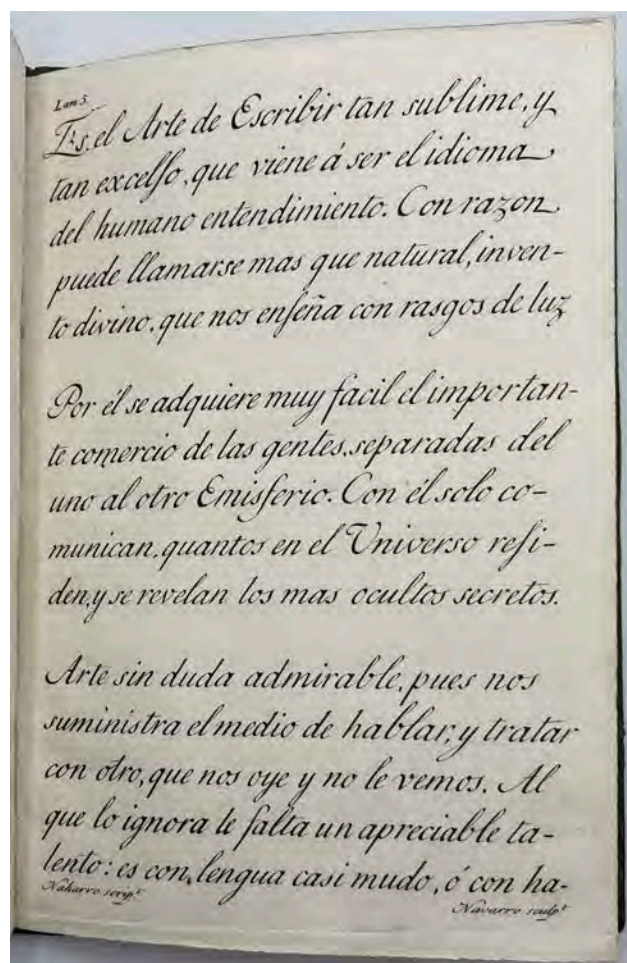 Lam 5.
Es, el Arte de Escribir tan sublime, y
tan excelso, que viene á ser el idioma
del humano entendimiento. Con razon
puede llamarse mas que natural, inven-
to divino, que nos enseña con rasgos de luz
Por él se adquiere muy facil el importan-
te comercio de las gentes, separadas del
uno al otro Emisferio. Con él solo co-
munican, quantos en el Universo resi-
den, y se revelan los mas ocultos secretos.
Arte sin duda admirable, pues nos
suministra el medio de hablar, y tratar
con otro, que nos oye y no le vemos. Al
que lo ignora le falta un apreciable ta-
lento: es con lengua casi mudo, ó con ha-
Naharro script.
Navarro sculpt.